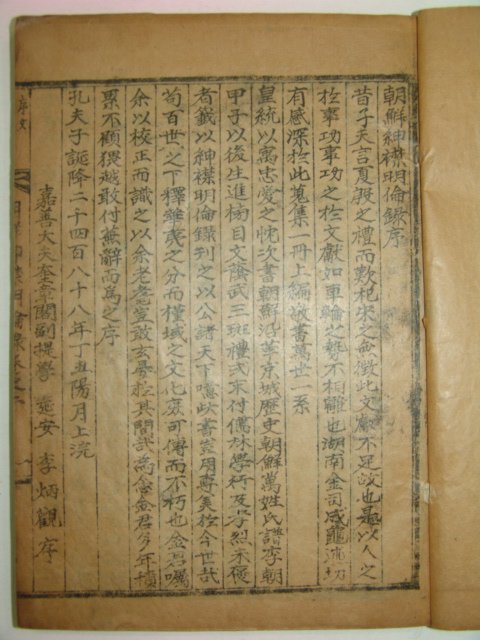 朝鮮紳襟明倫錄序
昔子夫言夏殷之禮而歎杞宋之無徵此文獻不足故也是以人之
於事功事功之於文獻如車輪之勢不相離也湖南金司
有感深於此蒐集一冊上編敬書萬世一系
皇統以寓忠愛之忱次書朝鮮沿革京城歷史朝鮮萬姓氏譜李朝
甲子以後生進榜目文蔭武三班禮式末付儒林學行及孝烈未褒
者籤以紳襟明倫錄刊之以公諸天下噫此書豈用專美於今世哉
苟百世之下釋雖夷之分而槿域之文化庶可傳而不朽也僉君囑
余以校正而識之以余老耄豈敢玄晏於其間哉為念僉君多年積
累不顧猥越敢付蕪辭而為之序
孔夫子誕降二千四百八十八年丁丑陽月上浣
嘉善大夫奎章閣副提學 延安 李炳觀序
序文